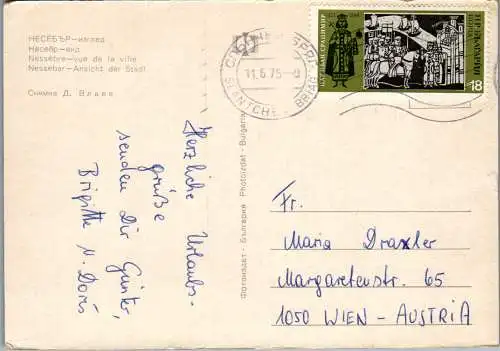 НЕСЕБЪР—изглед
Несебр—вид
Nessébre—vue de la ville
Nessebar—Ansicht der Stadt
Снимка Д. Влаев
Herzliche Urlaubs-
grüße
senden Dir Günter,
Brigitte u. Doris
Фотоиздат - България Photoizdat - Bulgaria
11.6.75
SLANTCH
BRIAG
18
Fr.
Maria Draxler
Margaretenstr. 65
1050 WIEN - AUSTRIA